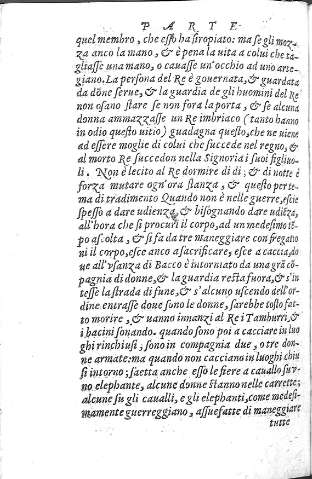 PARTE
quel membro, che esso ha stropiato: ma se gli moz-
za anco la mano, & è pena la uita a colui che ta-
gliasse una mano, o cauasse un'occhio ad uno arte-
giano. La persona del Re è gouernata, & guardata
da dōne serue, & la guardia de gli huomini del Re
non osano stare se non fora la porta, & se alcuna
donna ammazzasse un Re imbriaco (tanto hanno
in odio questo uitio) guadagna questo, che ne uiene
ad essere moglie di colui che succede nel regno, &
al morto Re succedon nella Signoria i suoi figliuo-
li. Non è lecito al Re dormire di dì; & di notte è
forza mutare ogn'ora stanza, & questo per te-
ma di tradimento Quando non è nelle guerre, escie
spesso a dare udienza, & bisognando dare udiēza,
all'hora che si procuri il corpo, ad un medesimo tē-
po ascolta, & si fa da tre maneggiare con fregatio
ni il corpo, esce anco a sacrificare, esce a caccia, do
ue all'usanza di Bacco è intorniato da una grā cō-
pagnia di donne, & la guardia resta fuora, & s'in
tesse la strada di fune, & s'alcuno uscendo dell'or-
dine entrasse doue sono le donne, sarebbe tosto fat-
to morire, & uanno innanzi al Re i Tamburri, &
i bacini sonando. quando sono poi a cacciare in luo
ghi rinchiusi, sono in compagnia due, o tre don-
ne armate: ma quando non cacciano in luoghi chiu
si intorno; saetta anche esso le fiere a cauallo su u-
no elephante, alcune donne stanno nelle carrette;
alcune su gli caualli, e gli elephanti, come medesi-
mamente guerreggiano, assuefatte di maneggiare
tutte